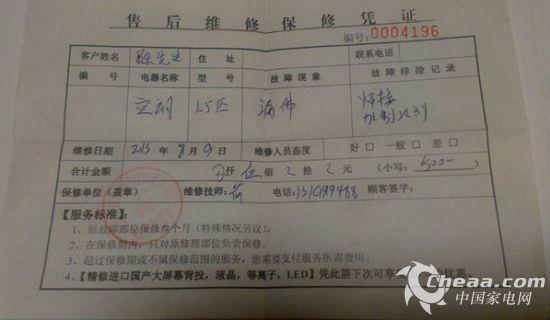 售后维修保修凭证
编号:0004196
客户姓名 陈先生 住址 联系电话
编号 电器名称 型号 故障现象 故障排除记录
空调 1.5匹 漏佛 焊接
加制冷剂
维修日期 2013年8月9日 维修人员态度 好口 一般口 差口
合计金额 仟伍佰 拾 元 (小写:500
保修单位(盖章) 维修技师: 电话: 顾客签字:
【服务标准:】
1、原故障部位保修叁个月(特殊情况另议)。
2、在保修期内,只对原修理部位负责保修。
3、超过保修期或不属保修范围的服务,您需要支付服务所需费用。
4、【精修进口国产大屏幕背投,液晶,等离子,LED】凭此票下次可享 优惠。
Cheaa.com
中国家电网